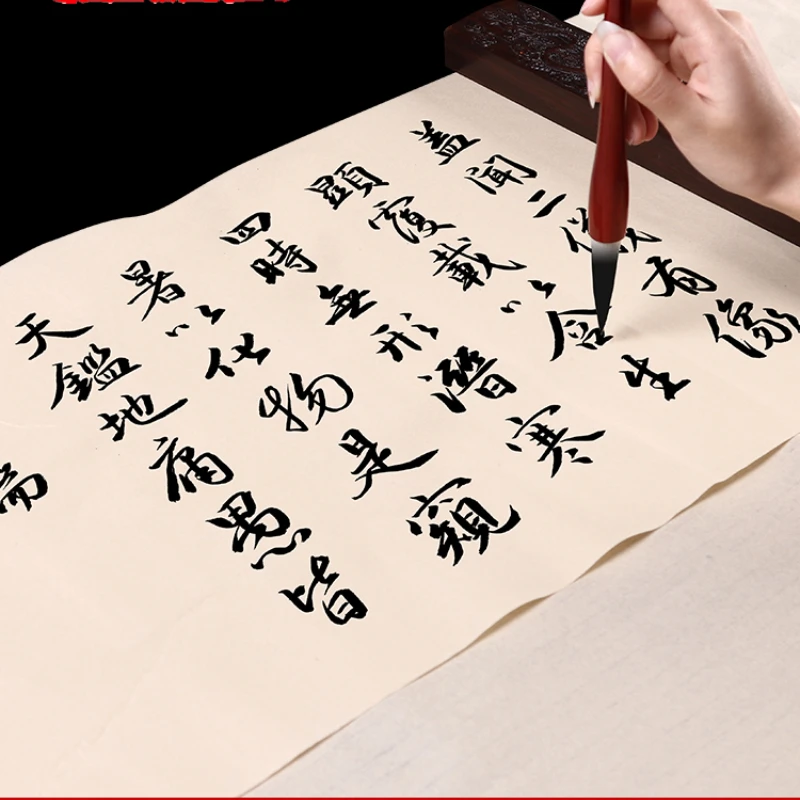 盖聞二儀有像
顯覆載以含生
四時無形潛寒
暑以化物是窺
天鑑地庸愚皆